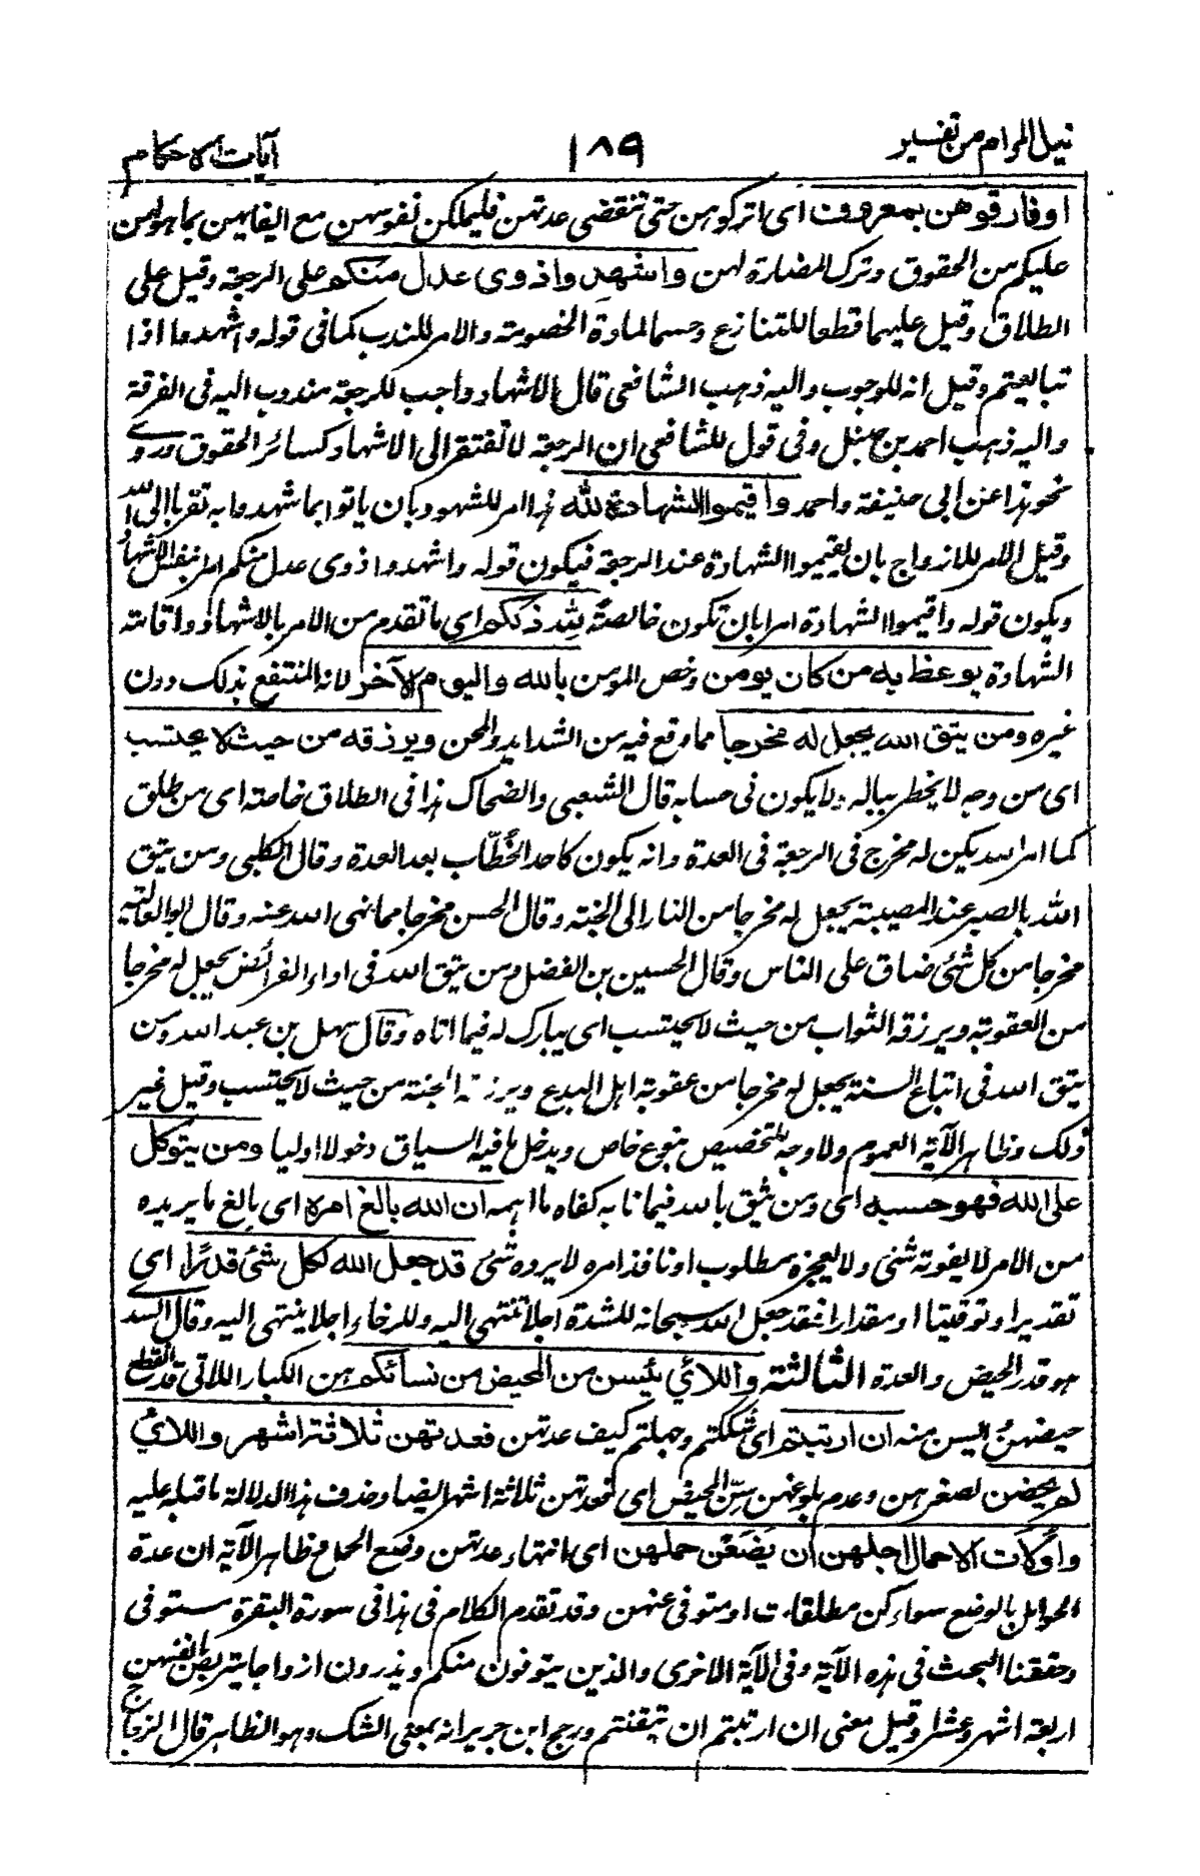 نيل المرام من تفسير
١٨٩
آيات الاحكام
او فارقوهن بمعروف اى اتركوهن حتى تنقضى عدتهن فيملكن نفوسهن مع ايفائهن بما هو لهن
عليكم من الحقوق وترك المضارة لهن واشهدوا ذوى عدل منكم على الرجعة وقيل على
الطلاق وقيل عليهما قطعا للتنازع وحسما لمادة الخصومة والامر للندب كما فى قوله واشهدوا اذا
تبايعتم وقيل انه للوجوب واليه ذهب الشافعى قال الاشهاد واجب للرجعة مندوب اليه فى الفرقة
واليه ذهب احمد بن حنبل وفى قول للشافعى ان الرجعة لا تفتقر الى الاشهاد كسائر الحقوق وروى
نحو هذا عن ابى حنيفة واحمد واقيموا الشهادة لله هذا امر للشهود بان ياتوا بما شهدوا به تقربا الى الله
وقيل الامر للازواج بان يقيموا الشهادة عند الرجعة فيكون قوله واشهدوا ذوى عدل منكم امر بنفس الاشهاد
ويكون قوله واقيموا الشهادة امرا بان تكون خالصة لله ذلكم اى ما تقدم من الامر بالاشهاد واقامة
الشهادة يوعظ به من كان يومن وخص المؤمن بالله واليوم الآخر لانه المنتفع بذلك دون
غيره ومن يتق الله يجعل له مخرجا مما وقع فيه من الشدايد والمحن ويرزقه من حيث لا يحتسب
اى من وجه لا يخطر بباله ولا يكون فى حسابه قال الشعبى والضحاك هذا فى الطلاق خاصة اى من طلق
كما امر الله يكن له مخرج فى الرجعة فى العدة وانه يكون كاحد الخُطّاب بعد العدة وقال الكلبى ومن يتق
الله بالصبر عند المصيبة يجعل له مخرجا من النار الى الجنة وقال الحسن مخرجا مما نهى الله عنه وقال ابو العالية
مخرجا من كل شئ ضاق على الناس وقال الحسين بن الفضل ومن يتق الله فى اداء الفرائض يجعل له مخرجا
من العقوبة ويرزقه الثواب من حيث لا يحتسب اى يبارك له فيما اتاه وقال سهل بن عبد الله ومن
يتق الله فى اتباع السنة يجعل له مخرجا من عقوبة اهل البدع ويرزقه الجنة من حيث لا يحتسب وقيل غير
ذلك وظاهر الآية العموم ولا وجه للتخصيص بنوع خاص ويدخل ما فيه السياق دخولا اوليا ومن يتوكل
على الله فهو حسبه اى ومن يثق بالله فيما نابه كفاه ما اهمه ان الله بالغ امره اى بالغ ما يريده
من الامر لا يفوته شئ ولا يعجزه مطلوب او نافذ امره لا يرده شئ قد جعل الله لكل شئ قدرًا اى
تقديرا وتوقيتا او مقدارا فقد جعل الله سبحانه للشدة اجلا تنتهى اليه وللرخاء اجلا ينتهى اليه وقال السدى
هو قدر الحيض والعدة الثالثة واللائي يئسن من المحيض من نسائكم هن الكبار اللاتى قد انقطع
حيضهن وايسن منه ان ارتبتم اى شككتم وجهلتم كيف عدتهن فعدتهن ثلاثة اشهر واللائي
لم يحضن لصغرهن وعدم بلوغهن سن المحيض اى فعدتهن ثلاثة اشهر ايضا وحذف هذا لدلالة ما قبله عليه
وأولات الاحمال اجلهن ان يضعن حملهن اى انتهاء عدتهن وضع الحمل فظاهر الآية ان عدة
الحوامل بالوضع سواء كن مطلقات او متوفى عنهن وقد تقدم الكلام فى هذا فى سورة البقرة مستوفى
وحققنا البحث فى هذه الآية وفى الآية الاخرى والذين يتوفون منكم ويذرون ازواجا يتربصن بانفسهن
اربعة اشهر وعشرا وقيل معنى ان ارتبتم ان تيقنتم ورجح ابن جرير انه بمعنى الشك وهو الظاهر قال الزجاج